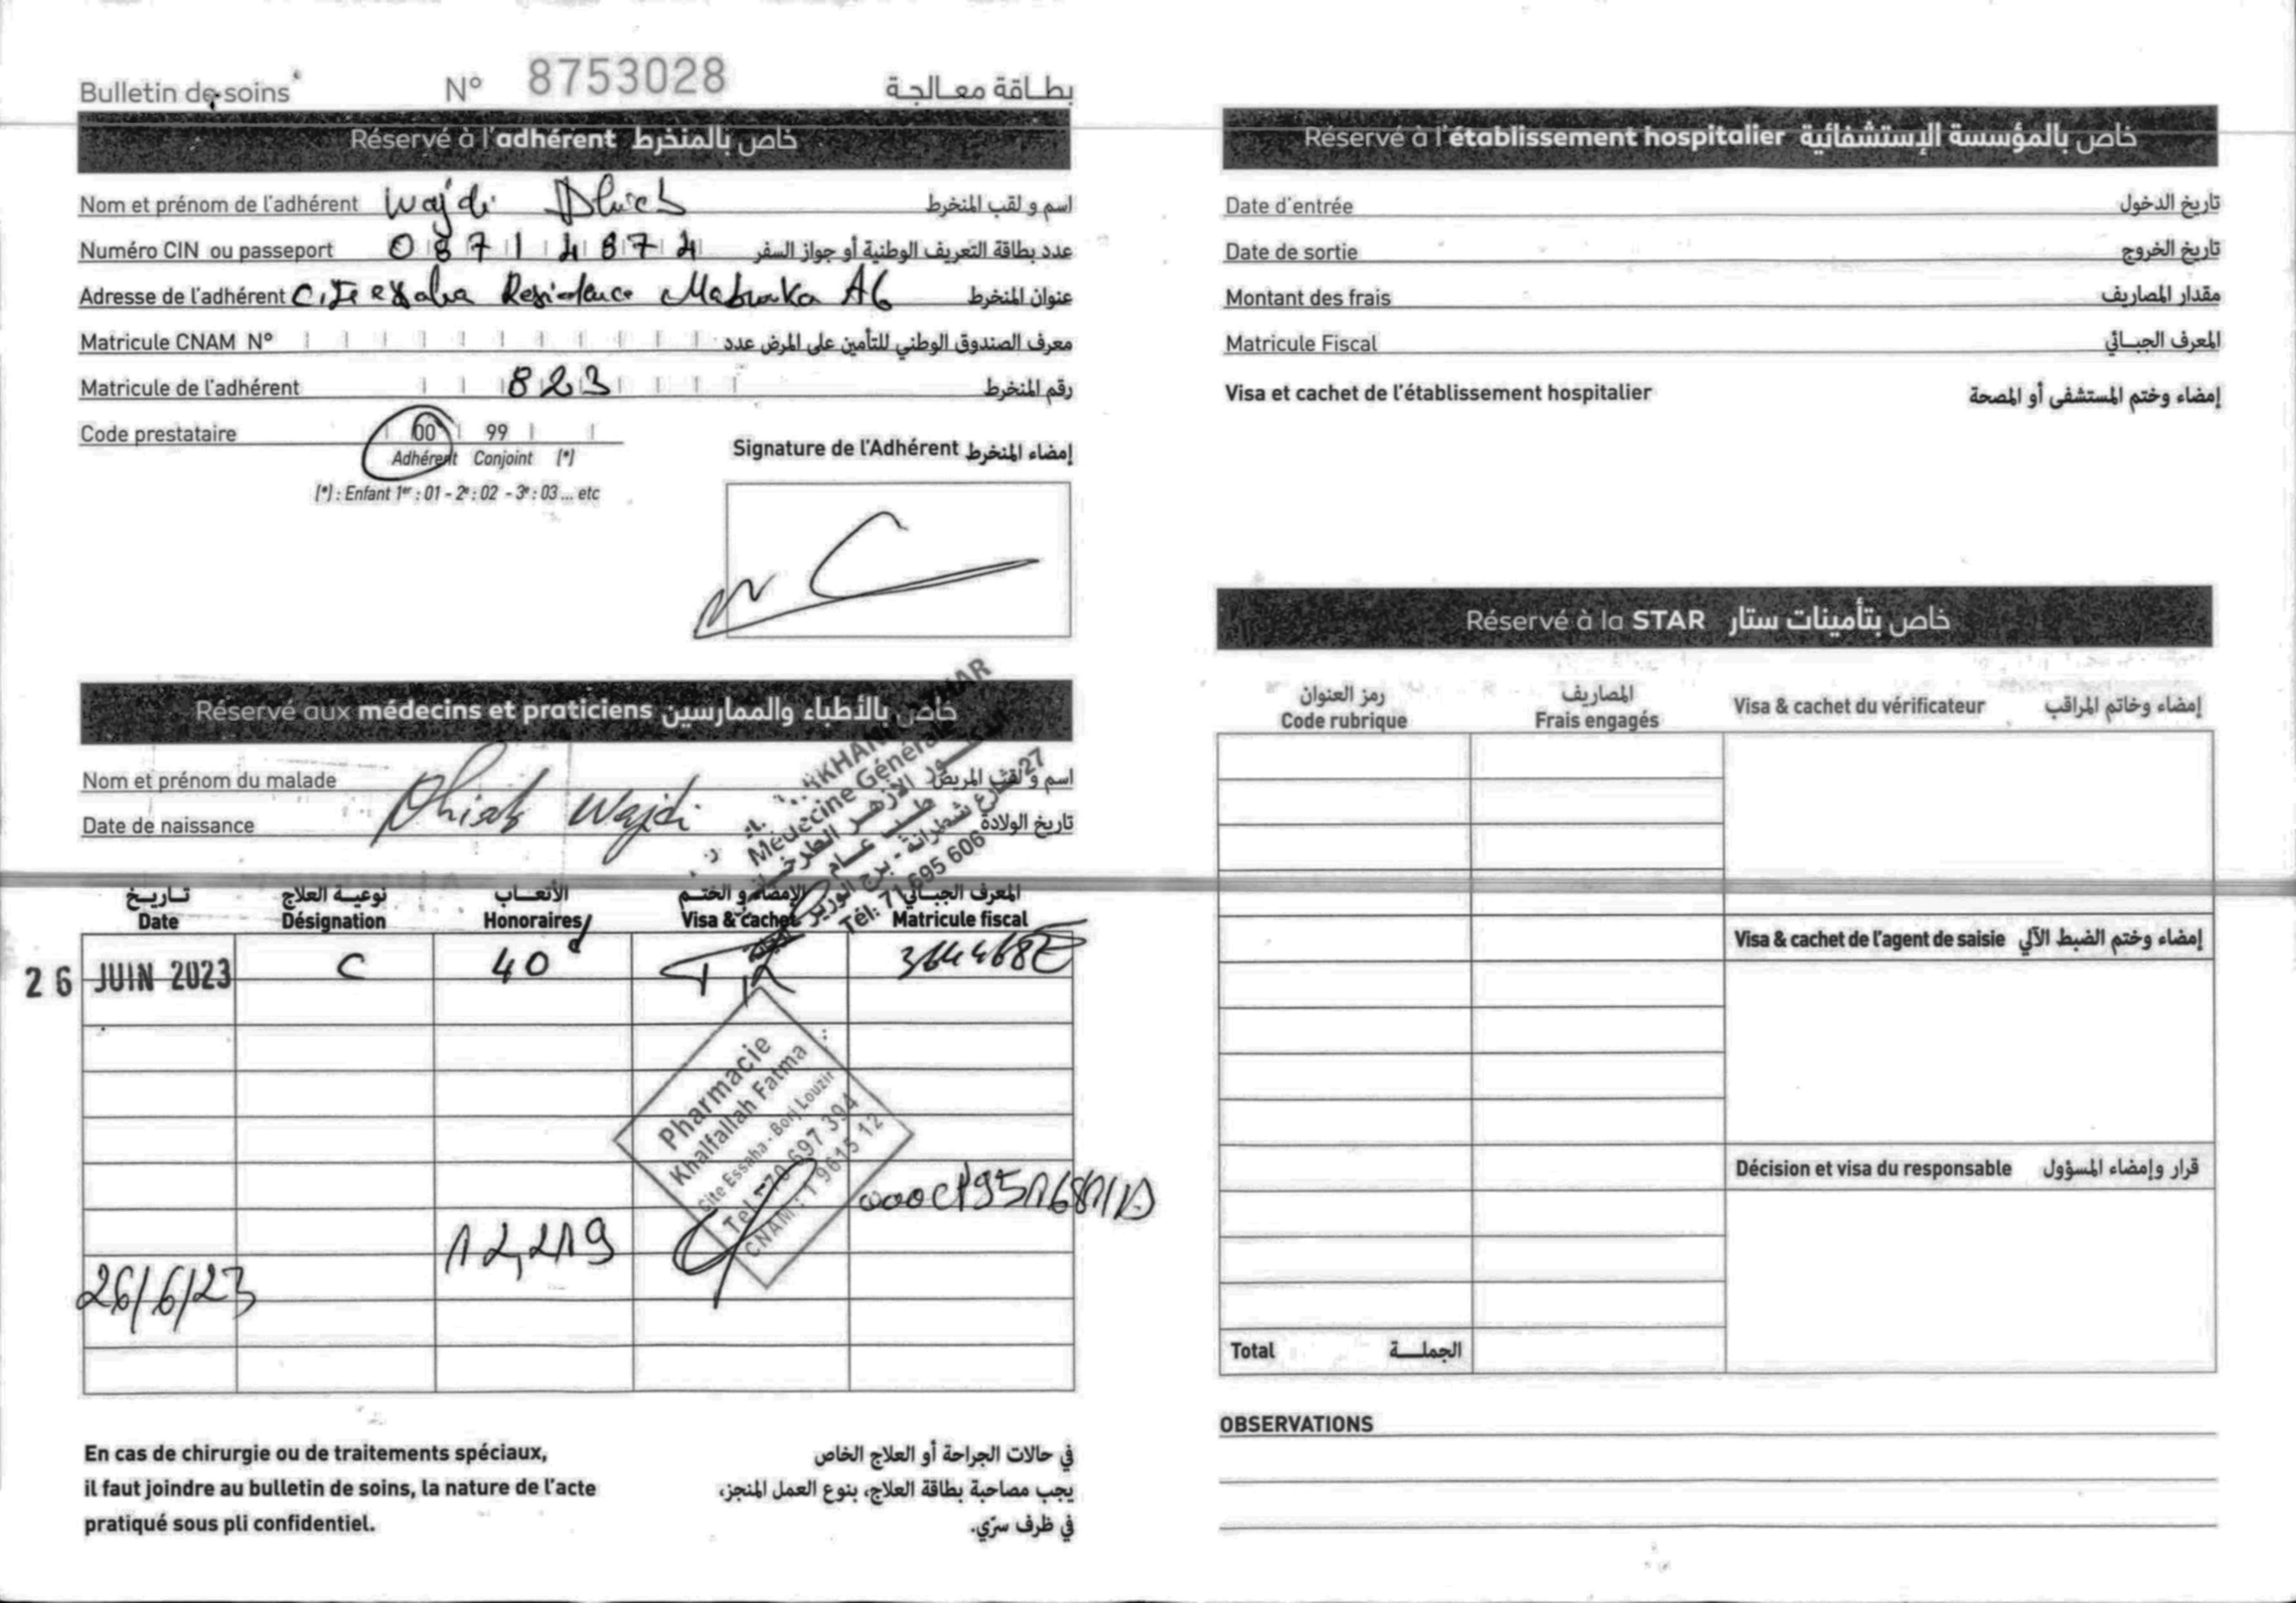 Bulletin de soins N° 8753028 بطاقة معالجة
Réservé à l'adhérent خاص بالمنخرط
Nom et prénom de l'adhérent Wajdi Dhieb اسم و لقب المنخرط
Numéro CIN ou passeport 08714874 عدد بطاقة التعريف الوطنية أو جواز السفر
Adresse de l'adhérent Residence Mabrouka A6 عنوان المنخرط
Matricule CNAM N° معرف الصندوق الوطني للتأمين على المرض عدد
Matricule de l'adhérent 823 رقم المنخرط
Code prestataire 00 99
Adhérent Conjoint (*)
(*) : Enfant 1er : 01 - 2e : 02 - 3e : 03 ... etc
Signature de l'Adhérent إمضاء المنخرط
Réservé aux médecins et praticiens خاص بالأطباء والممارسين
Nom et prénom du malade Dhieb Wajdi اسم و لقب المريض
Date de naissance تاريخ الولادة
Médecine Générale
طب عام
27 شارع شطرانة - برج الوزير
Tél: 71 695 606
تاريخ نوعية العلاج الأتعاب الإمضاء و الختم المعرف الجبائي
Date Désignation Honoraires Visa & cachet Matricule fiscal
26 JUIN 2023 C 40d 364468E
Pharmacie
Khalfallah Fatma
Cite Essaha - Borj Louzir
Tel : 70 697 394
CNAM : 1 9615 12
26/6/23 12,219
En cas de chirurgie ou de traitements spéciaux,
il faut joindre au bulletin de soins, la nature de l'acte
pratiqué sous pli confidentiel.
في حالات الجراحة أو العلاج الخاص
يجب مصاحبة بطاقة العلاج، بنوع العمل المنجز،
في ظرف سرّي.
Réservé à l'établissement hospitalier خاص بالمؤسسة الإستشفائية
Date d'entrée تاريخ الدخول
Date de sortie تاريخ الخروج
Montant des frais مقدار المصاريف
Matricule Fiscal المعرف الجبائي
Visa et cachet de l'établissement hospitalier إمضاء وختم المستشفى أو المصحة
Réservé à la STAR خاص بتأمينات ستار
رمز العنوان المصاريف
Code rubrique Frais engagés Visa & cachet du vérificateur إمضاء وخاتم المراقب
Visa & cachet de l'agent de saisie إمضاء وختم الضبط الآلي
Décision et visa du responsable قرار وإمضاء المسؤول
Total الجملة
OBSERVATIONS